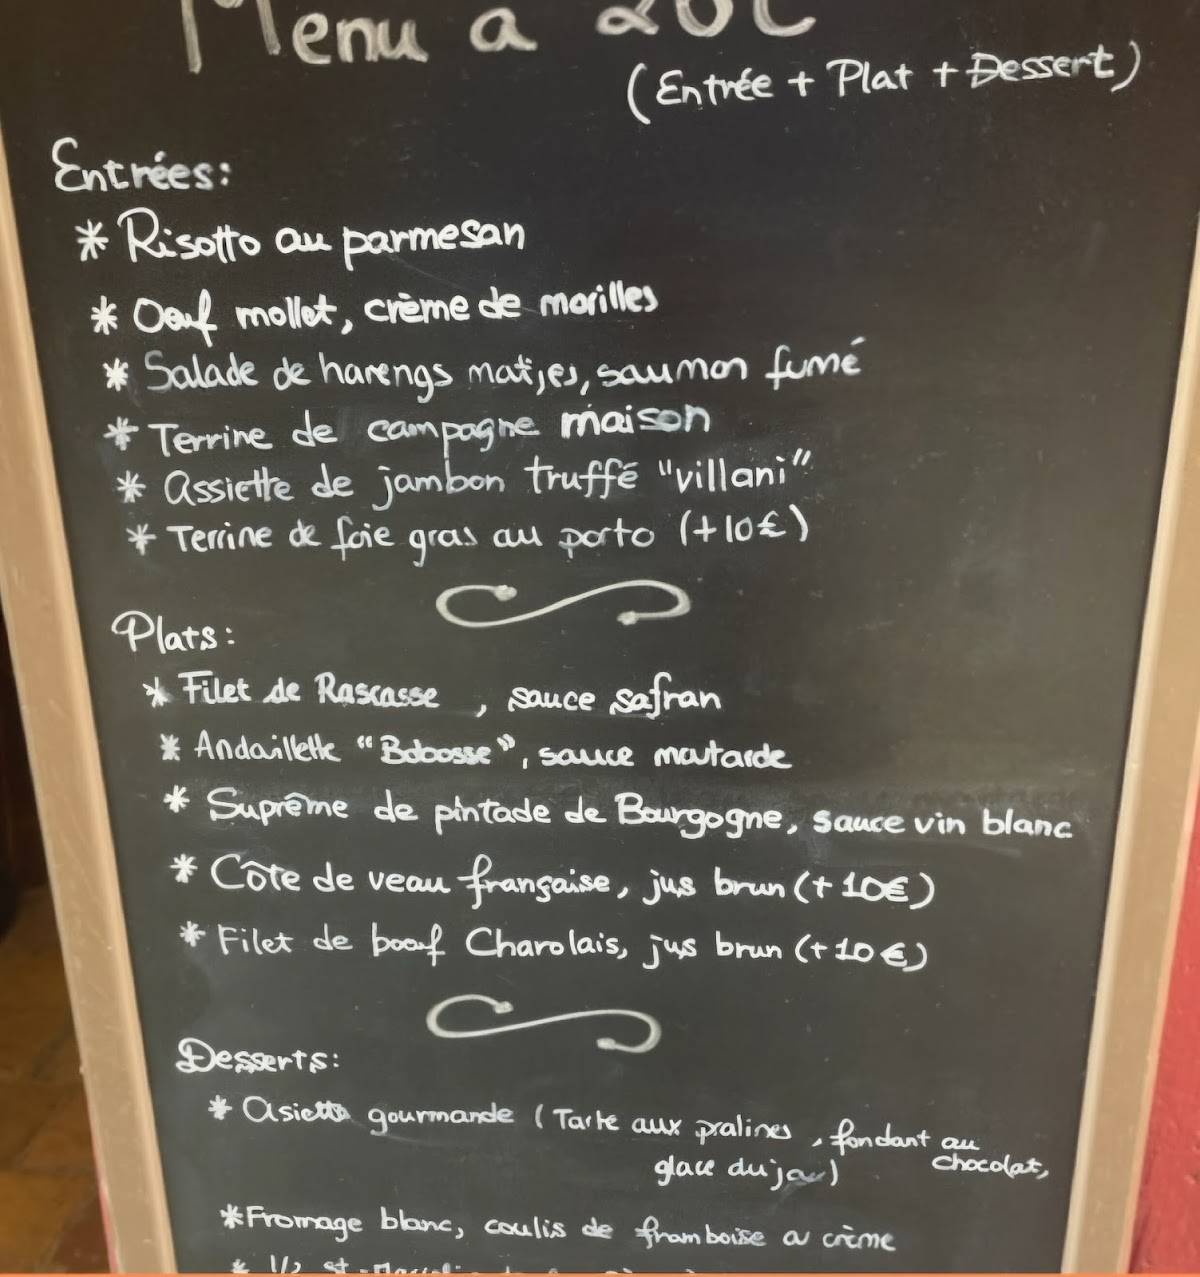 Menu a 20€
(Entrée + Plat + Dessert)
Entrées:
* Risotto au parmesan
* Oeuf mollet, crème de morilles
* Salade de harengs matjes, saumon fumé
* Terrine de campagne maison
* Assiette de jambon truffé "villani"
* Terrine de foie gras au porto (+10€)
Plats:
* Filet de Rascasse, sauce safran
* Andouillette "Bobosse", sauce moutarde
* Suprême de pintade de Bourgogne, sauce vin blanc
* Côte de veau française, jus brun (+10€)
* Filet de boeuf Charolais, jus brun (+10€)
Desserts:
* Asiette gourmande (Tarte aux pralines, fondant au
chocolat,
glace du jour)
* Fromage blanc, coulis de framboise ou crème
* 1/2 st-Marcellin